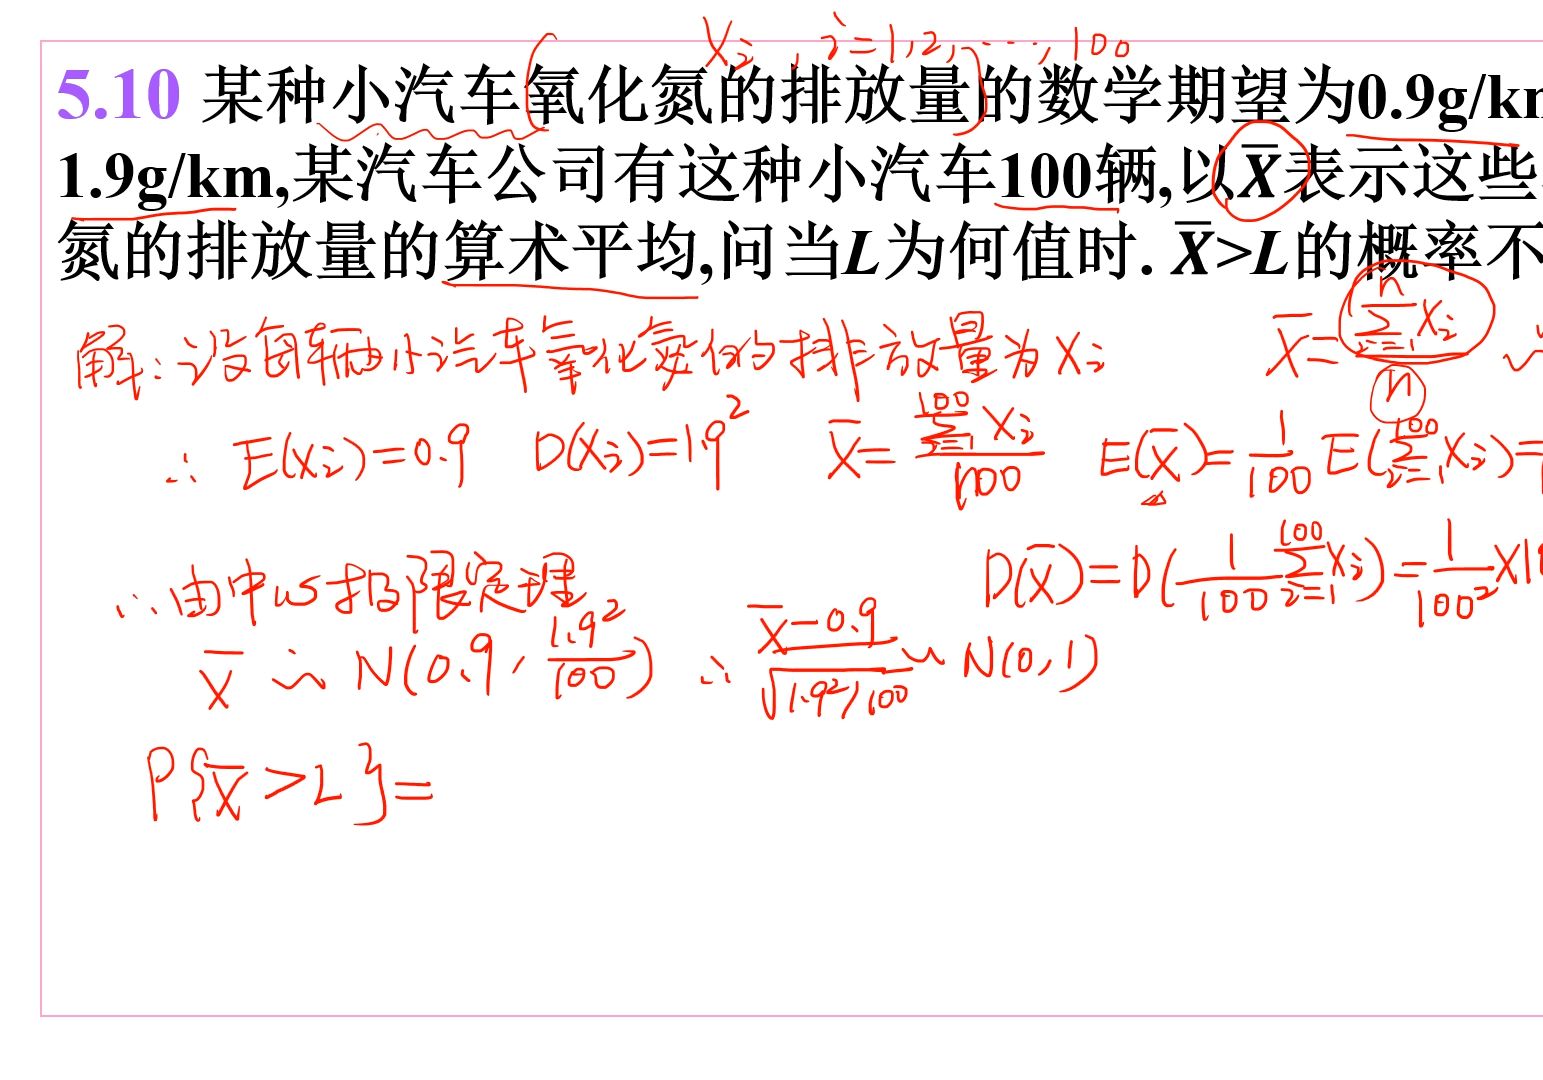 X_i , i=1,2,…,100
5.10 某种小汽车氧化氮的排放量的数学期望为0.9g/k
1.9g/km,某汽车公司有这种小汽车100辆,以X̄表示这些
氮的排放量的算术平均,问当L为何值时. X̄>L的概率不
解:设每辆小汽车氧化氮的排放量为X_i X̄=∑_{i=1}^{n}X_i/n
∴ E(X_i)=0.9 D(X_i)=1.9² X̄=∑_{i=1}^{100}X_i/100 E(X̄)=1/100 E(∑_{i=1}^{100}X_i)=
D(X̄)=D(1/100 ∑_{i=1}^{100}X_i)=1/100²×1
∴由中心极限定理
X̄ ∼ N(0.9, 1.9²/100) ∴ (X̄-0.9)/√(1.9²/100) ∼ N(0,1)
P{X̄>L}=